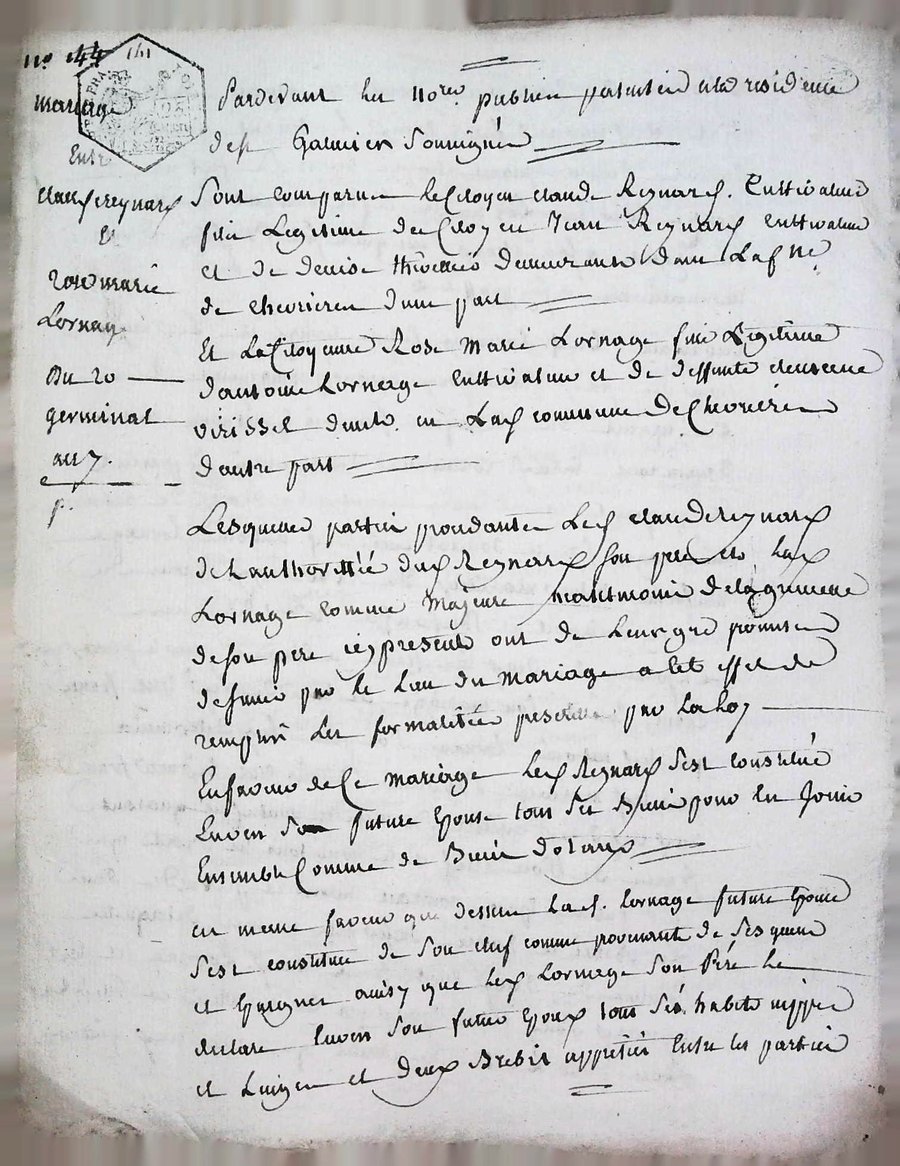 n° 144 141
mariage
Entre
Claud Reynard
Et
rose marie
Lornage
Du 20
germinal
an 7.
Pardevant les no.res publics patentés a la residence
de st Galmier Soussignés
Sont comparus le Citoyen Claude Reynard. Cultivateur
fils Legitime de Citoyen Jean Reynard Cultivateur
et de denise demeurants dans La
de chevrieres d'une part
Et La Citoyenne Rose Marie Lornage fille Legitime
d'antoine Lornage Cultivateur et de deffunte
virissel demte. en Lad commune de Chevrieres
d'autre part
Lesquelles parties procedantes Led Claude reynard
de Lauthorité dud Reynard son pere et Lad
Lornage comme Majeure de
de son pere icy present ont de Leur gré promis
de sunir par le Lien du mariage a Let effet de
remplir Les formalités prescrites par La Loy
En faveur de Ce mariage Led Reynard s'est constitué
Envers Sa future Epouse tous ses Biens pour En Jouir
Ensemble Comme de Biens dotaux
en meme faveur que dessus Lad. Lornage future Epouse
s'est constituée de Son chef comme provenants de Ses
et Epargnes ainsy que Led Lornage Son Pére Le
declare Envers Son futur Epoux tous Sés habits nippes
et Linges et deux Brebis appretiés Entre les parties